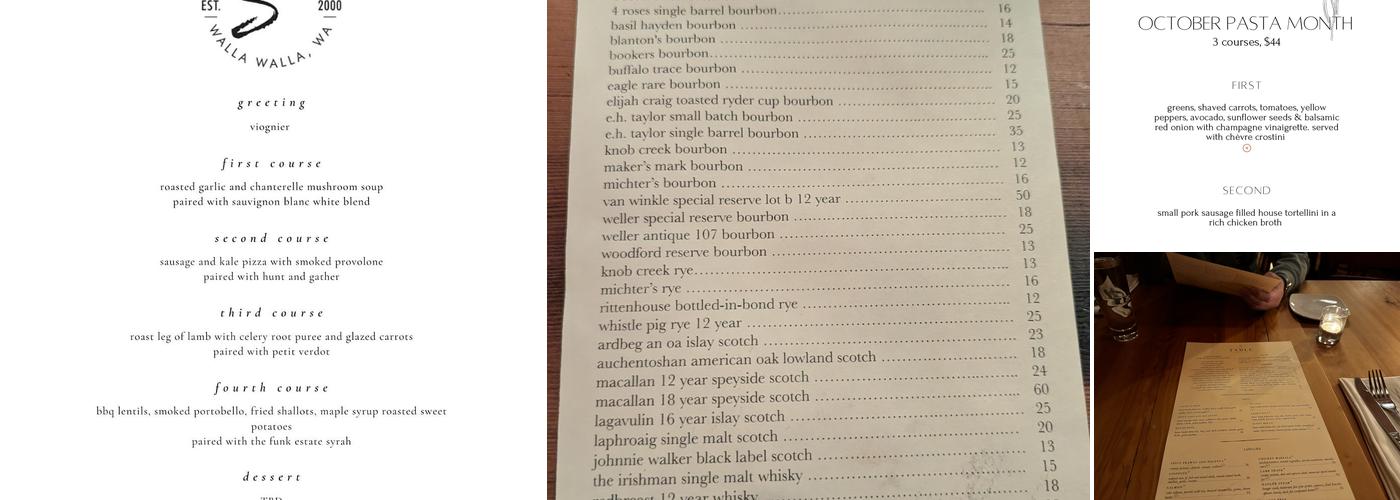 EST. 2000
WALLA WALLA, WA
greeting
viognier
first course
roasted garlic and chanterelle mushroom soup
paired with sauvignon blanc white blend
second course
sausage and kale pizza with smoked provolone
paired with hunt and gather
third course
roast leg of lamb with celery root puree and glazed carrots
paired with petit verdot
fourth course
bbq lentils, smoked portobello, fried shallots, maple syrup roasted sweet
potatoes
paired with the funk estate syrah
dessert
4 roses single barrel bourbon 16
basil hayden bourbon 14
blanton's bourbon 18
bookers bourbon 25
buffalo trace bourbon 12
eagle rare bourbon 15
elijah craig toasted ryder cup bourbon 20
e.h. taylor small batch bourbon 25
e.h. taylor single barrel bourbon 35
knob creek bourbon 13
maker's mark bourbon 12
michter's bourbon 16
van winkle special reserve lot b 12 year 50
weller special reserve bourbon 18
weller antique 107 bourbon 25
woodford reserve bourbon 13
knob creek rye 13
michter's rye 16
rittenhouse bottled-in-bond rye 12
whistle pig rye 12 year 25
ardbeg an oa islay scotch 23
auchentoshan american oak lowland scotch 18
macallan 12 year speyside scotch 24
macallan 18 year speyside scotch 60
lagavulin 16 year islay scotch 25
laphroaig single malt scotch 20
johnnie walker black label scotch 13
the irishman single malt whisky 15
12 year whisky 18
OCTOBER PASTA MONTH
3 courses, $44
FIRST
greens, shaved carrots, tomatoes, yellow
peppers, avocado, sunflower seeds & balsamic
red onion with champagne vinaigrette. served
with chèvre crostini
SECOND
small pork sausage filled house tortellini in a
rich chicken broth